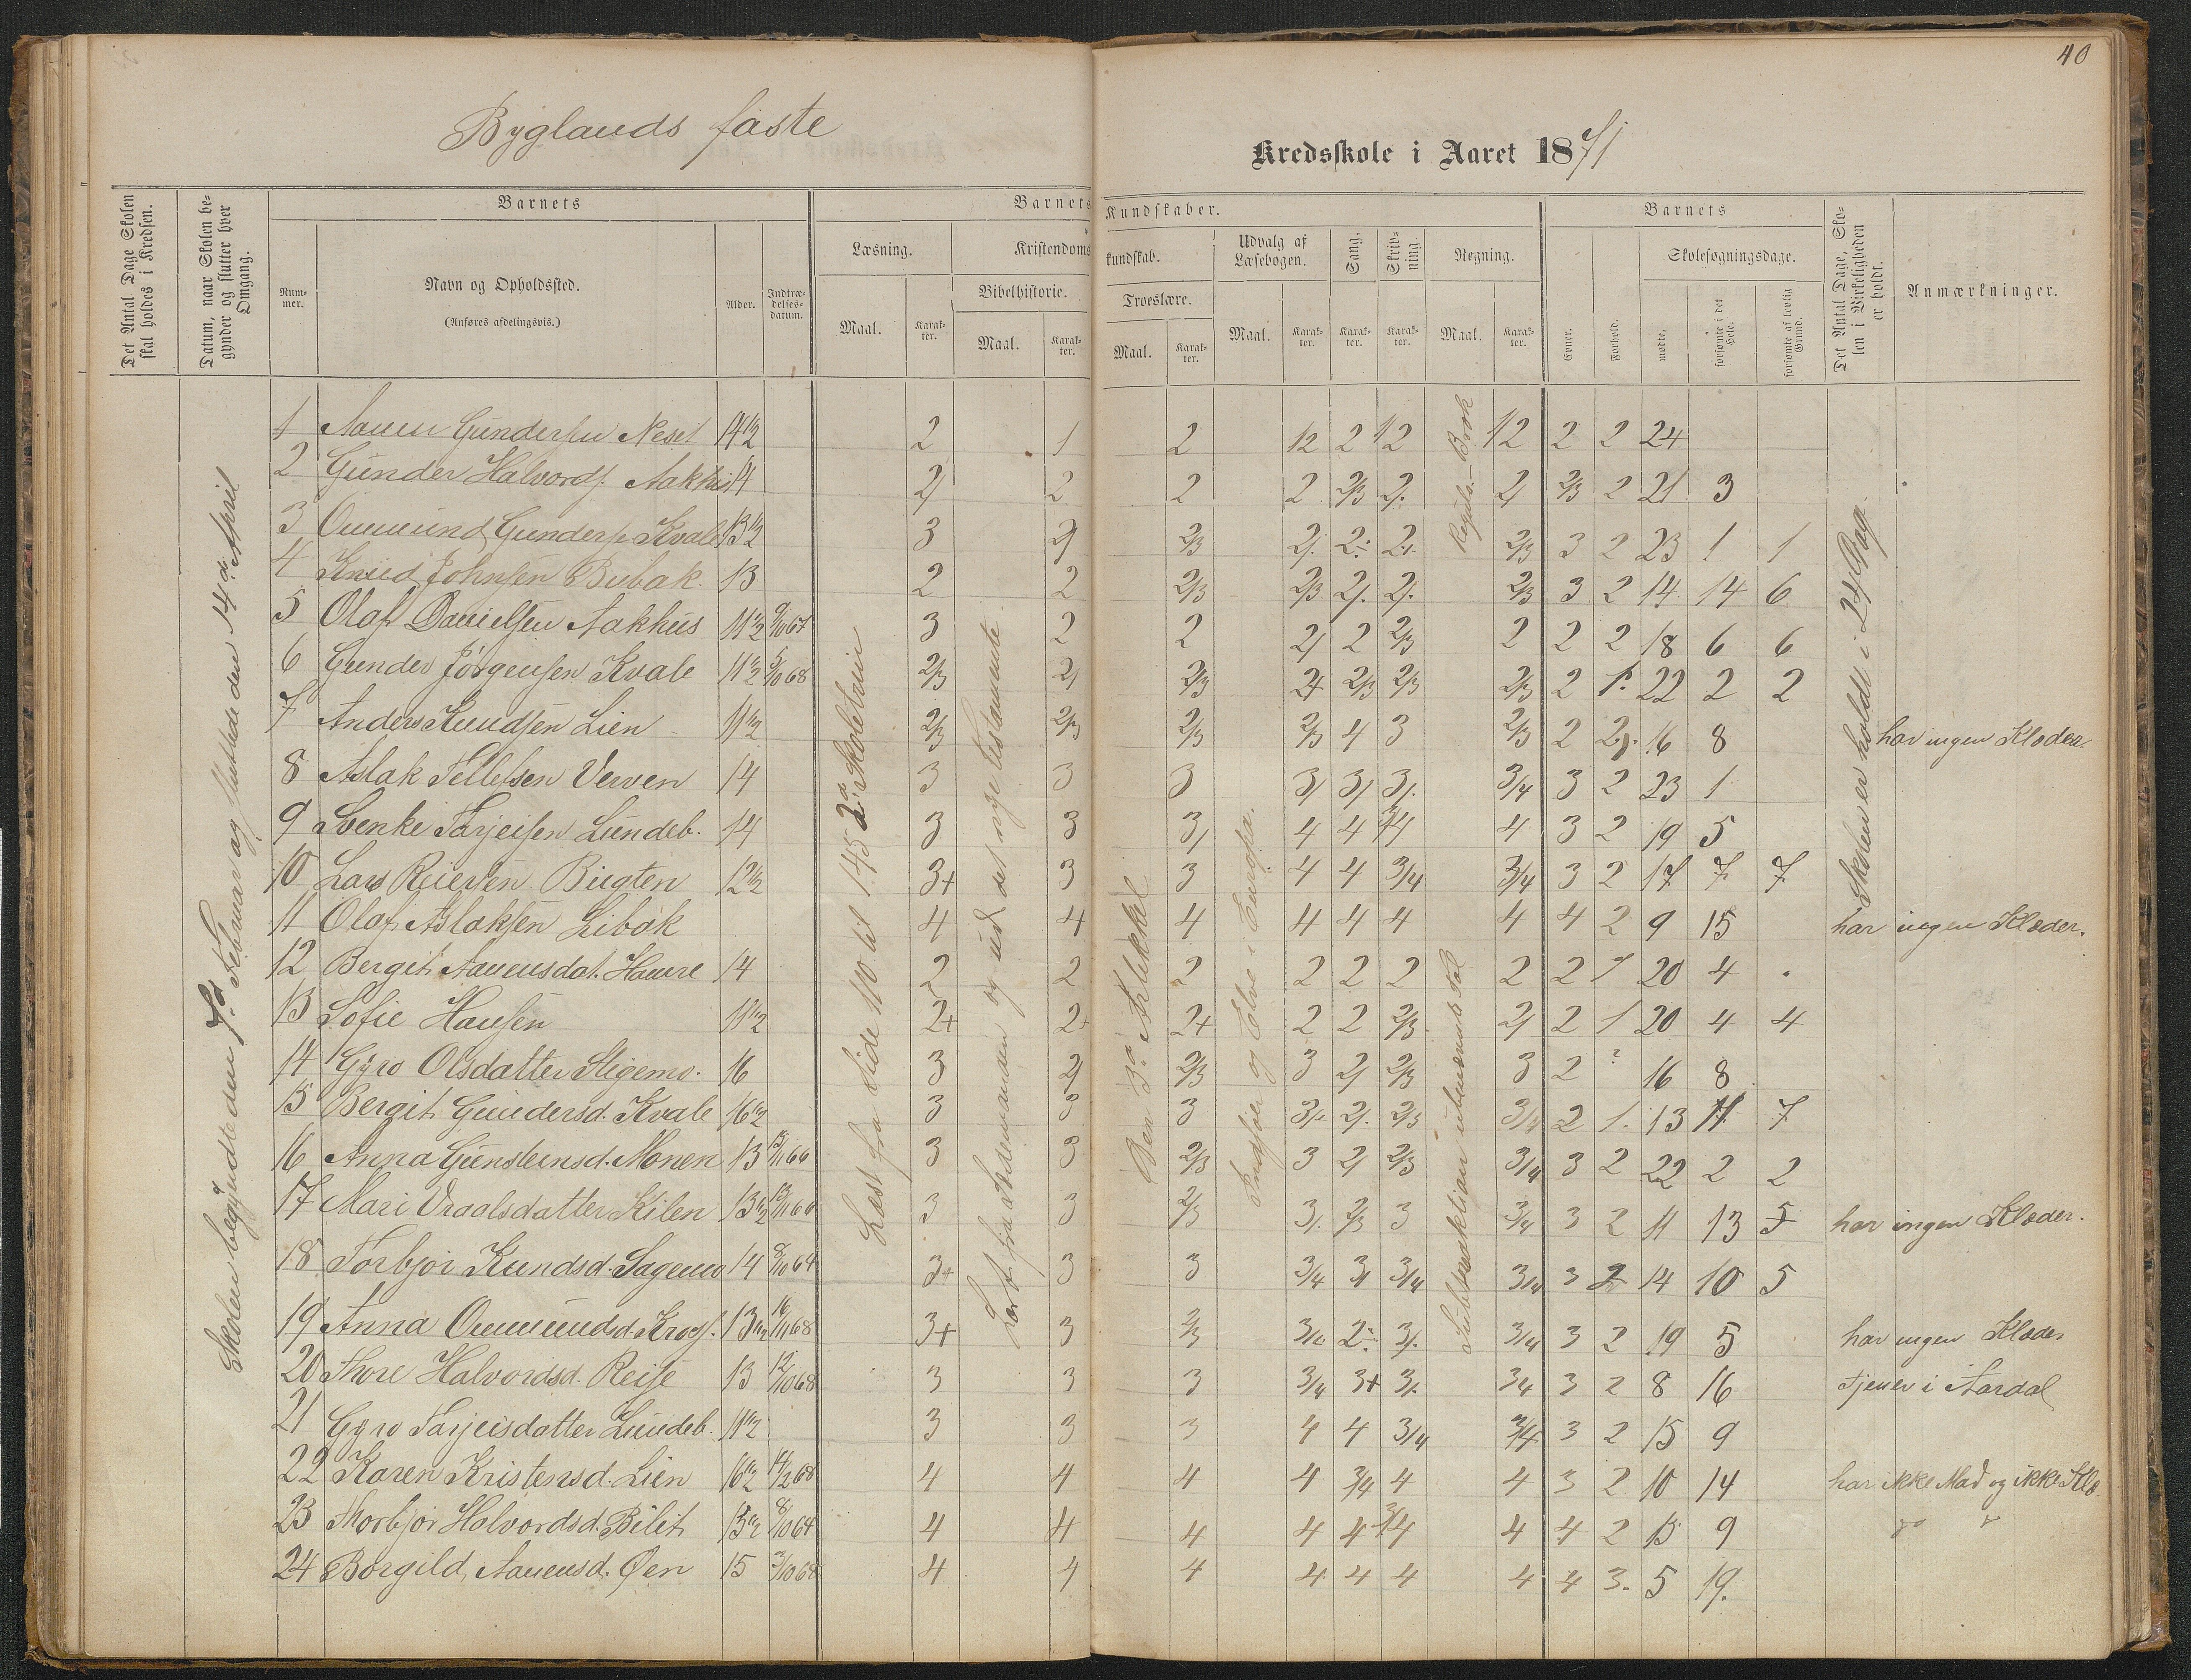 40
Byglands faste
Kredsskole i Aaret 1871
Det Antal Dage Skolen skal holdes i Kredsen.
Datum, naar Skolen begynder og slutter hver Omgang.
Barnets
Nummer.
Navn og Opholdssted.
(Anføres afdelingsvis.)
Alder.
Indtrædelsesdatum.
Barnets Kundskaber.
Læsning.
Maal.
Karakter.
Kristendomskundskab.
Bibelhistorie.
Maal.
Karakter.
Troeslære.
Maal.
Karakter.
Udvalg af Læsebogen.
Maal.
Karakter.
Sang.
Karakter.
Skrivning.
Karakter.
Regning.
Maal.
Karakter.
Barnets
Evner.
Forhold.
Skolesøgningsdage.
mødte.
forsømte i det Hele.
forsømte af lovlig Grund.
Det Antal Dage, Skolen i Virkeligheden er holdt.
Anmærkninger.
Skolen begyndte den 7de Februar og sluttede den 14de April
Læst fra Side 110 til 145 2det Skoletrin
og ud det nye Testamente
Den 3die Artikkel
Indsøer og Elve i Europa.
Regula - Brøk
Subtraktion Tal
Skolen er holdt i 24 Dag.
1 Aanen Gundersen Neset 14 1/2 2 1 2 12 2 12 12 2 2 24
2 Gunder Halvords. Aakhus 14 2/ 2 2 2 2/3 2/. 2/ 2/3 2 21 3
3 Ommund Gunders. Kvale 13 1/2 3 2/ 2/3 2/. 2 2 2/3 3 2 23 1 1
4 Knud Johnsen Bubak. 13 2 2 2/3 2/3 2/. 2/. 2/3 3 2 14 14 6
5 Olaf Danielsen Aakhus 11 1/2 9/10 67 3 2 2 2/ 2 2/3 2 2 2 18 6 6
6 Gunder Jörgensen Kvale 11 1/2 5/10 68 2/3 2/ 2/3 2+ 2/3 2/3 2/3 2 1. 22 2 2
7 Anders Knudsen Lien 11 1/2 2/3 2/3 2/3 2/3 4 3 2/3 2 2 16 8 har ingen Klæder.
8 Aslak Tellefsen Verven 14 3 3 3 3/ 3/ 3/. 3/4 3 2 23 1
9 Svenke Tarjeisen Lundeb. 14 3 3 3/ 4 4 3/4 4 3 2 19 5
10 Lars Reiersen Bugten 12 1/2 3+ 3 3 4 4 3/4 3/4 3 2 17 7 7
11 Olaf Aslaksen Libøk 4 4 4 4 4 4 4 4 2 9 15 har ingen Klæder.
12 Bergit Aanensdat. Haure 14 2 2 2 2 2 2 2 2 1 20 4
13 Sofie Hansen 11 1/2 2+ 2+ 2+ 2 2 2/3 2/ 2 1 20 4 4
14 Gyro Olsdatter Stigems. 16 3 2/ 2/3 3 2/ 2/3 3 2 ? 16 8
15 Bergit Gundersd. Kvale 16 1/2 3 3 3 3/. 2/. 2/3 3/4 2 1. 13 11 7
16 Anna Gunsteinsd. Monen 13 3 3 2/3 3 2/ 2/3 3/4 3 2 22 2 2
17 Mari Vraalsdatter Kilen 13 1/2 3 3 2/3 3/. 2/3 3 3/4 3 2 11 13 5 har ingen Klæder.
18 Torbjör Kundsd. Sagemo 14 8/10 64 3+ 3 3 3/4 3/ 3/4 3/4 3 2 14 10 5
19 Anna Ommundsd. 13 1/2 16/11 68 3+ 3 2/3 3/4 2 3/. 3/4 3 2 19 5 har ingen Klæder
20 Thore Halvordsd. Reise 13 12/10 68 3 3 3 3/4 3+ 3/. 3/4 3 2 8 16 tjener i Aardal
21 Gyro Tarjeisdatter Lundeb. 11 1/2 3 3 3 4 4 3/4 3/4 3 2 15 9
22 Karen Kristensd. Lien 10 1/2 68 4 4 4 4 3/4 4 4 3 2 10 14 har ikke Mad og ikke Klæ.
23 Thorbjör Halvordsd. Bilit 13 1/2 8/10 64 4 4 4 4 4 3/4 4 4 2 15 9
24 Borgild Aanensd. Øen 15 3/10 68 4 4 4 4 4 4 4 4 3. 5 19.